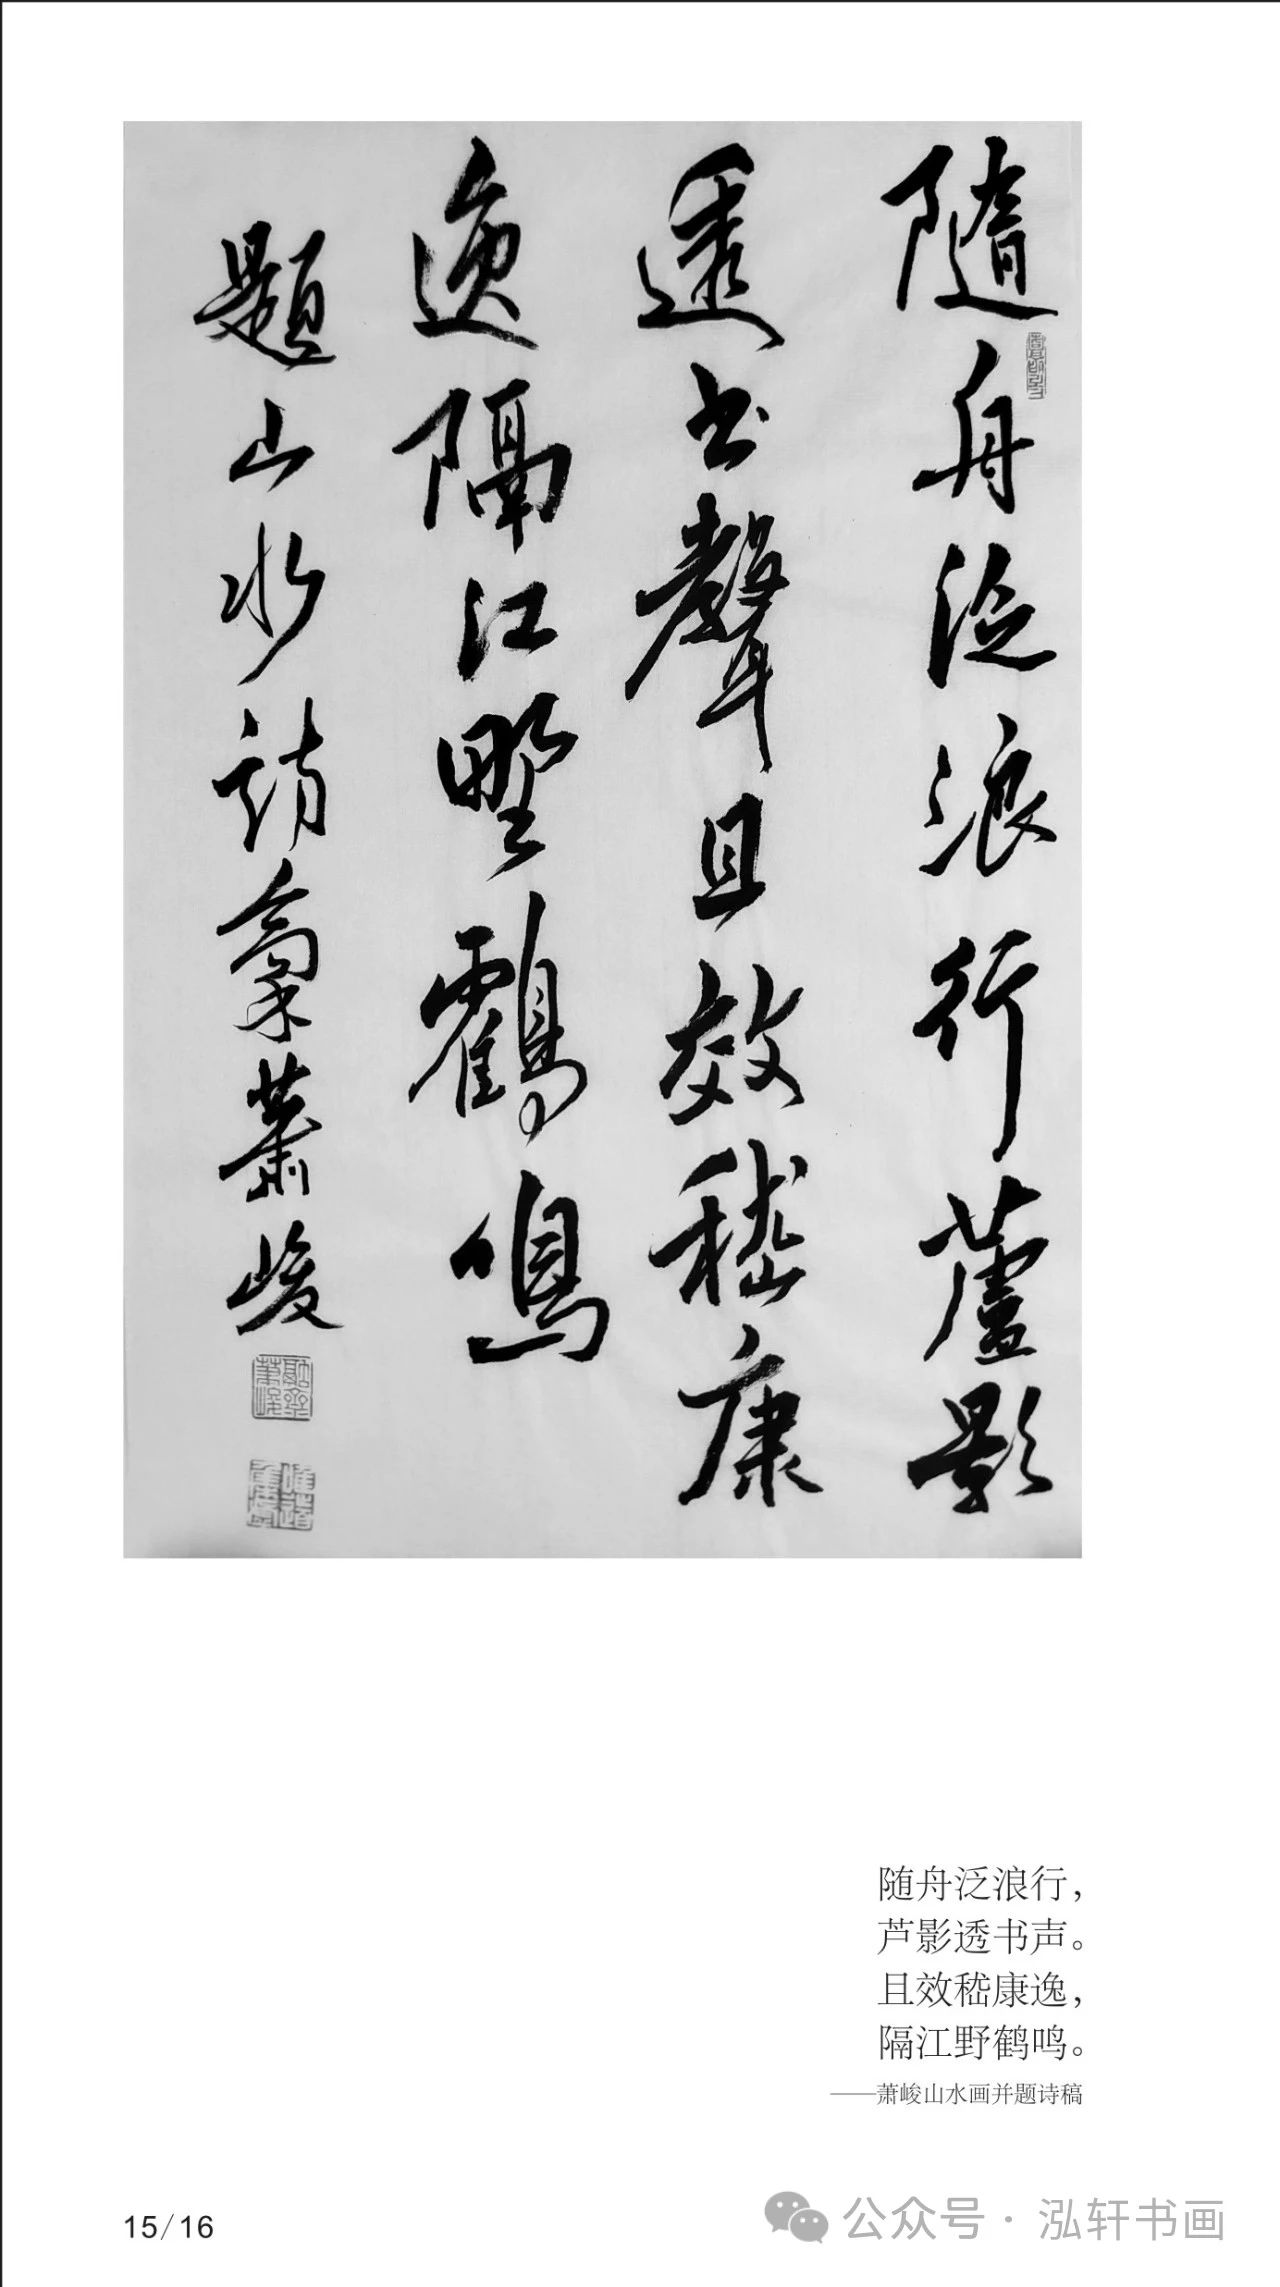 隨舟泛浪行蘆影
透書聲且效嵇康
逸隔江野鶴鳴
題山水詩稾蕭峻
随舟泛浪行，
芦影透书声。
且效嵇康逸，
隔江野鹤鸣。
——萧峻山水画并题诗稿
15/16
公众号·泓轩书画